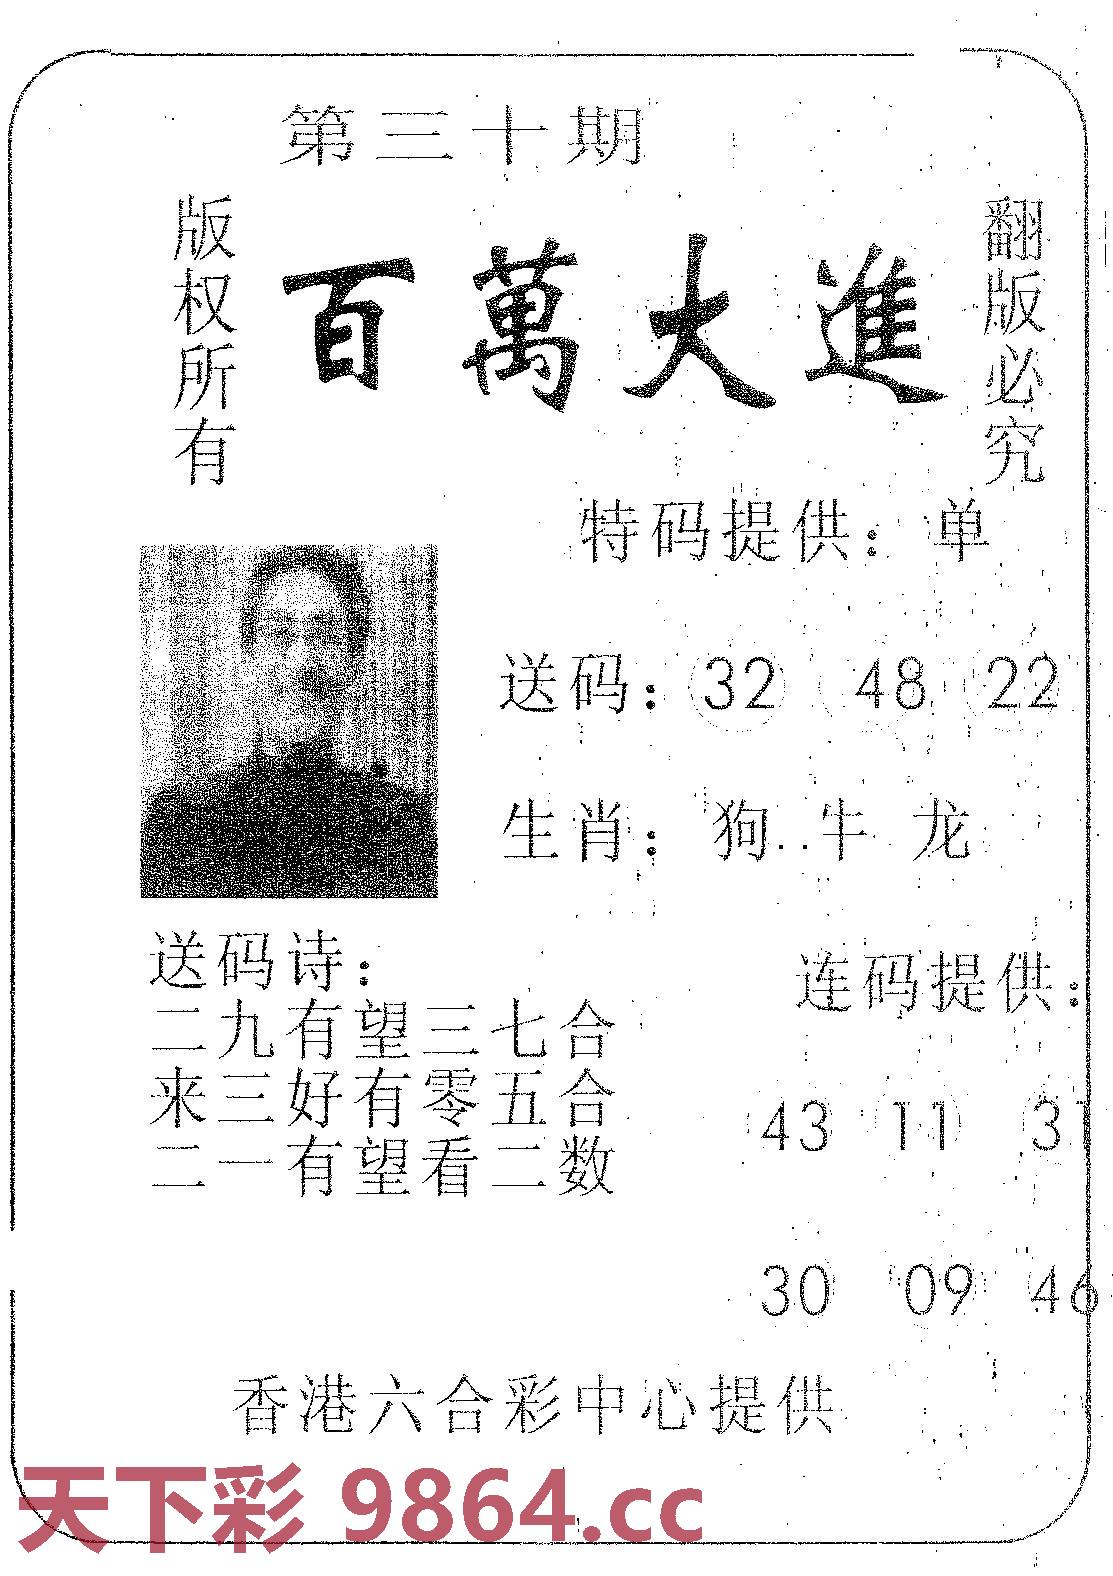 第三十期
版权所有
百萬大進
翻版必究
特码提供：单
送码：32 48 22
生肖：狗..牛 龙
送码诗：
二九有望三七合
来三好有零五合
二一有望看二数
连码提供：
43 11 31
30 09 46
香港六合彩中心提供
天下彩 9864.cc